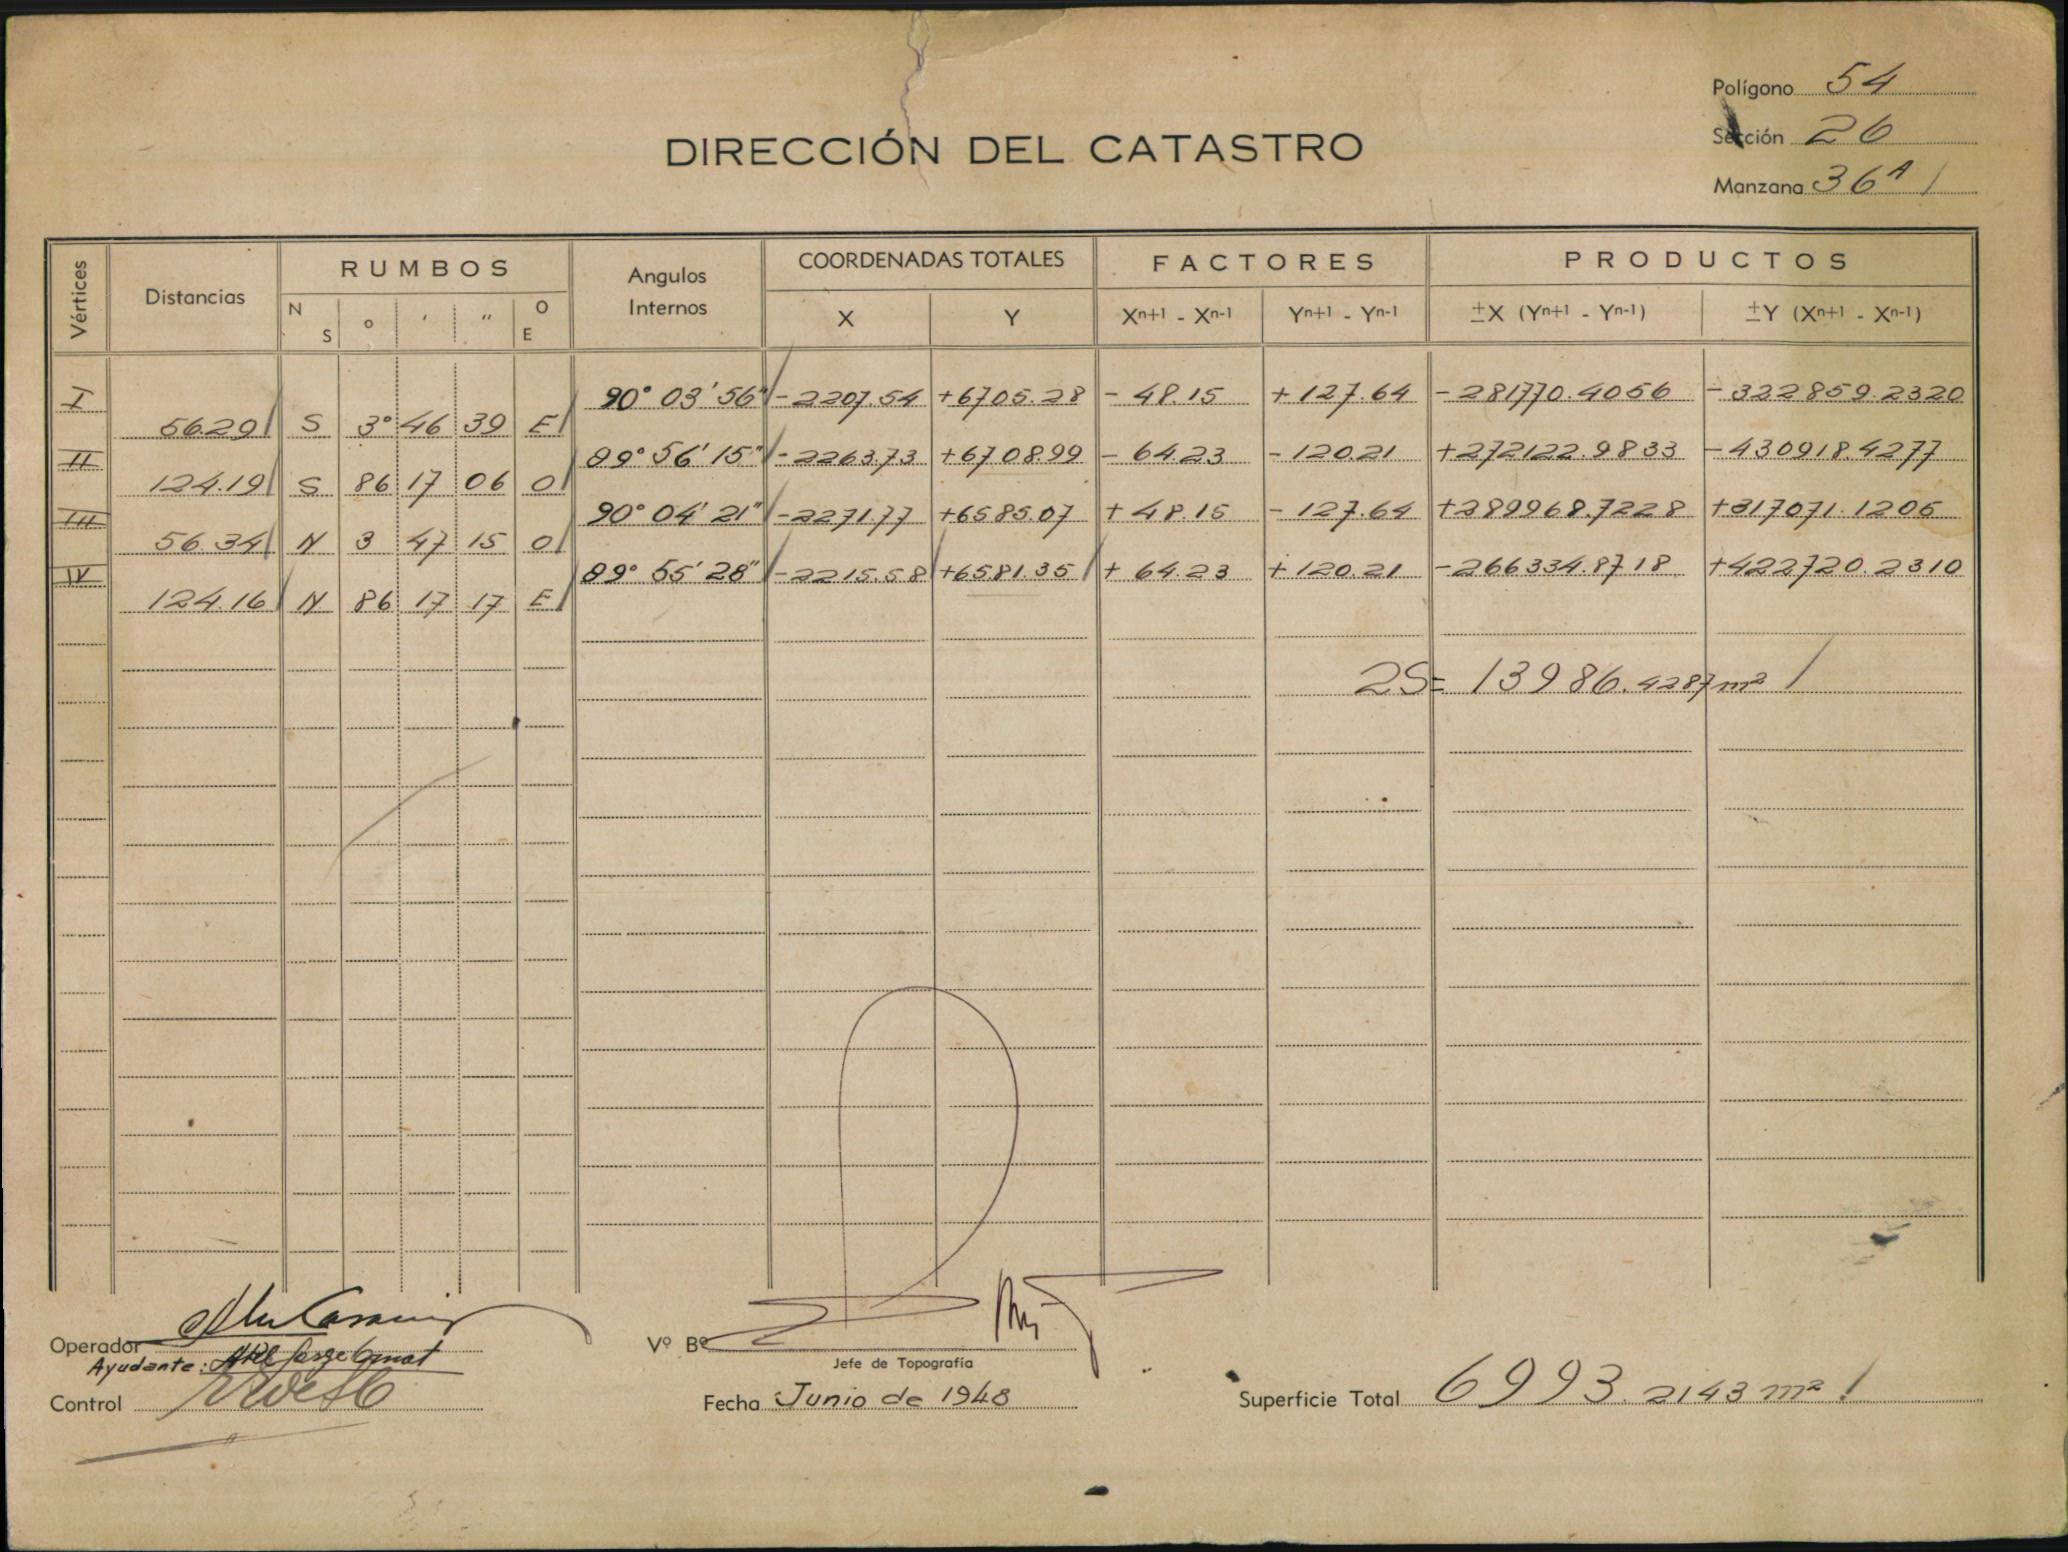 Polígono 54
DIRECCIÓN DEL CATASTRO
Sección 26
Manzana 36A
Vértices Distancias RUMBOS Angulos Internos COORDENADAS TOTALES FACTORES PRODUCTOS
N S ° ' " O E X Y Xn+1 - Xn-1 Yn+1 - Yn-1 ±X (Yn+1 - Yn-1) ±Y (Xn+1 - Xn-1)
I 90° 03' 56" -2207.54 +6705.28 - 48.15 + 127.64 - 281770.4056 - 322859.2320
56.29 S 3° 46 39 E
II 89° 56' 15" -2263.73 +6708.99 - 64.23 - 120.21 +272122.9833 -430918.4277
124.19 S 86 17 06 O
III 90° 04' 21" -2271.77 +6585.07 + 48.15 - 127.64 +289968.7228 +317071.1205
56.34 N 3 47 15 O
IV 89° 55' 28" -2215.58 +6581.35 + 64.23 + 120.21 -266334.8718 +422720.2310
124.16 N 86 17 17 E
2S= 13986.4287 m²
Operador
Ayudante:
Control
Vº Bº
Jefe de Topografía
Fecha Junio de 1948
Superficie Total 6993.2143 m²